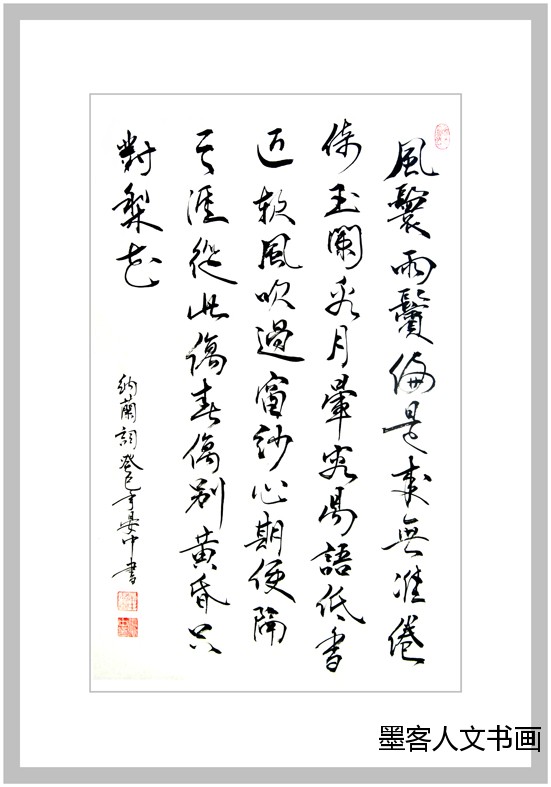 風鬟雨鬢偏是來無准倦
倚玉闌看月暈容易語低香
近軟風吹過窗紗心期便隔
天涯從此傷春傷別黄昏只
對梨花
納蘭詞癸巳年晏中書
墨客人文书画